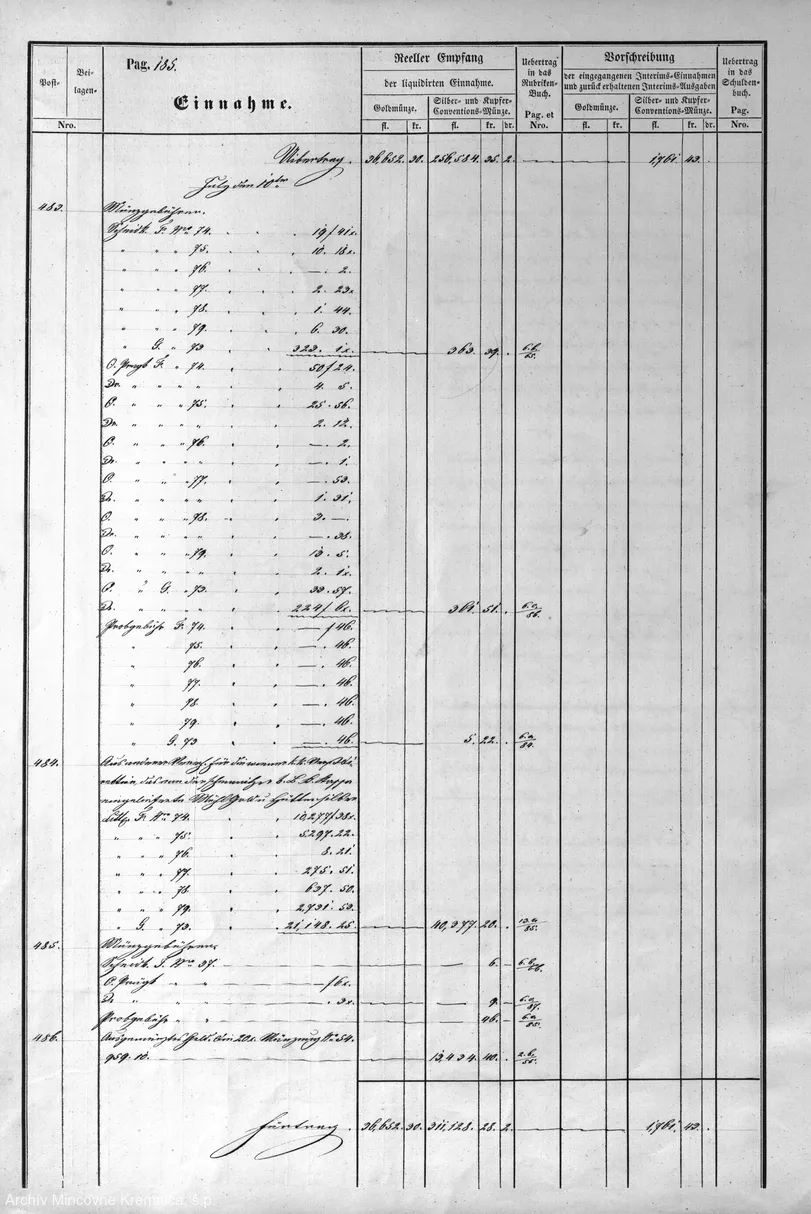 Post-
Bei-
lagen-
Nro.
Pag. 185.
Einnahme.
Reeller Empfang
der liquidirten Einnahme.
Goldmünze.
Silber- und Kupfer-
Conventions-Münze.
fl. kr. fl. kr. dr.
Uebertrag
in das
Rubriken-
Buch.
Pag. et
Nro.
Vorschreibung
der eingegangenen Interims-Einnahmen
und zurück erhaltenen Interims-Ausgaben
Goldmünze.
Silber- und Kupfer-
Conventions-Münze.
fl. kr. fl. kr. dr.
Uebertrag
in das
Schulden-
buch.
Pag.
Nro.
Uibertrag . 36,652. 30. 256,584. 35. 2. 1,761. 43.
July den 10ten
483. Münzgebühren.
Scheidk. F. No 74. 19 f 41 x.
" " " 75. 10. 18 x.
" " " 76. —. 2.
" " " 77. 2. 23 x.
" " " 78. 1. 44.
" " " 79. 6. 30.
" G. " 73 323. 1 x. 363. 39.
O. Prägk F. " 74. 50 f 24.
Do. " " " " 4. 5.
O. " " " 75. 25. 56.
Do. " " " " 2. 12.
O. " " " 76. —. 2.
Do. " " " " —. 1.
O. " " " 77. —. 53.
Do. " " " " 1. 31.
O. " " " 78. 3. —.
Do. " " " " —. 38.
O. " " " 79. 13. 5.
Do. " " " " 2. 1 x.
O. " G. " 73. 33. 57.
Do. " " " " 224 f 6 x. 361. 51.
Probgebühr F. 74. — f 46.
" 75. —. 46.
" 76. —. 46.
" 77. —. 46.
" 78. —. 46.
" 79. —. 46.
" G. 73 —. 46. 5. 22.
484. Aus anderer
eingelieferte Mühl Gold u Hüttensilber
F. No 74. 10,277 f 38 x.
" " " 75. 5,297. 22.
" " " 76. 8. 21.
" " " 77. 275. 51.
" " " 78. 637. 50.
" " " 79. 2,731. 53.
" G. " 73. 21,148. 25. 40,377. 20.
485. Münzgebühren.
Scheidk. F. Nro 37. 6.
O. Prägk " " — f 6 x.
Do. " " . 3 x. 9.
Probgebühr " " 46.
486. Ausgemünztes Geld. 20x. Münzung No 54.
959. 10. 13,434. 40.
Fürtrag . 36,652. 30. 311,128. 28. 2. 1,761. 43.
Archív Mincovne Kremnica, š.p.